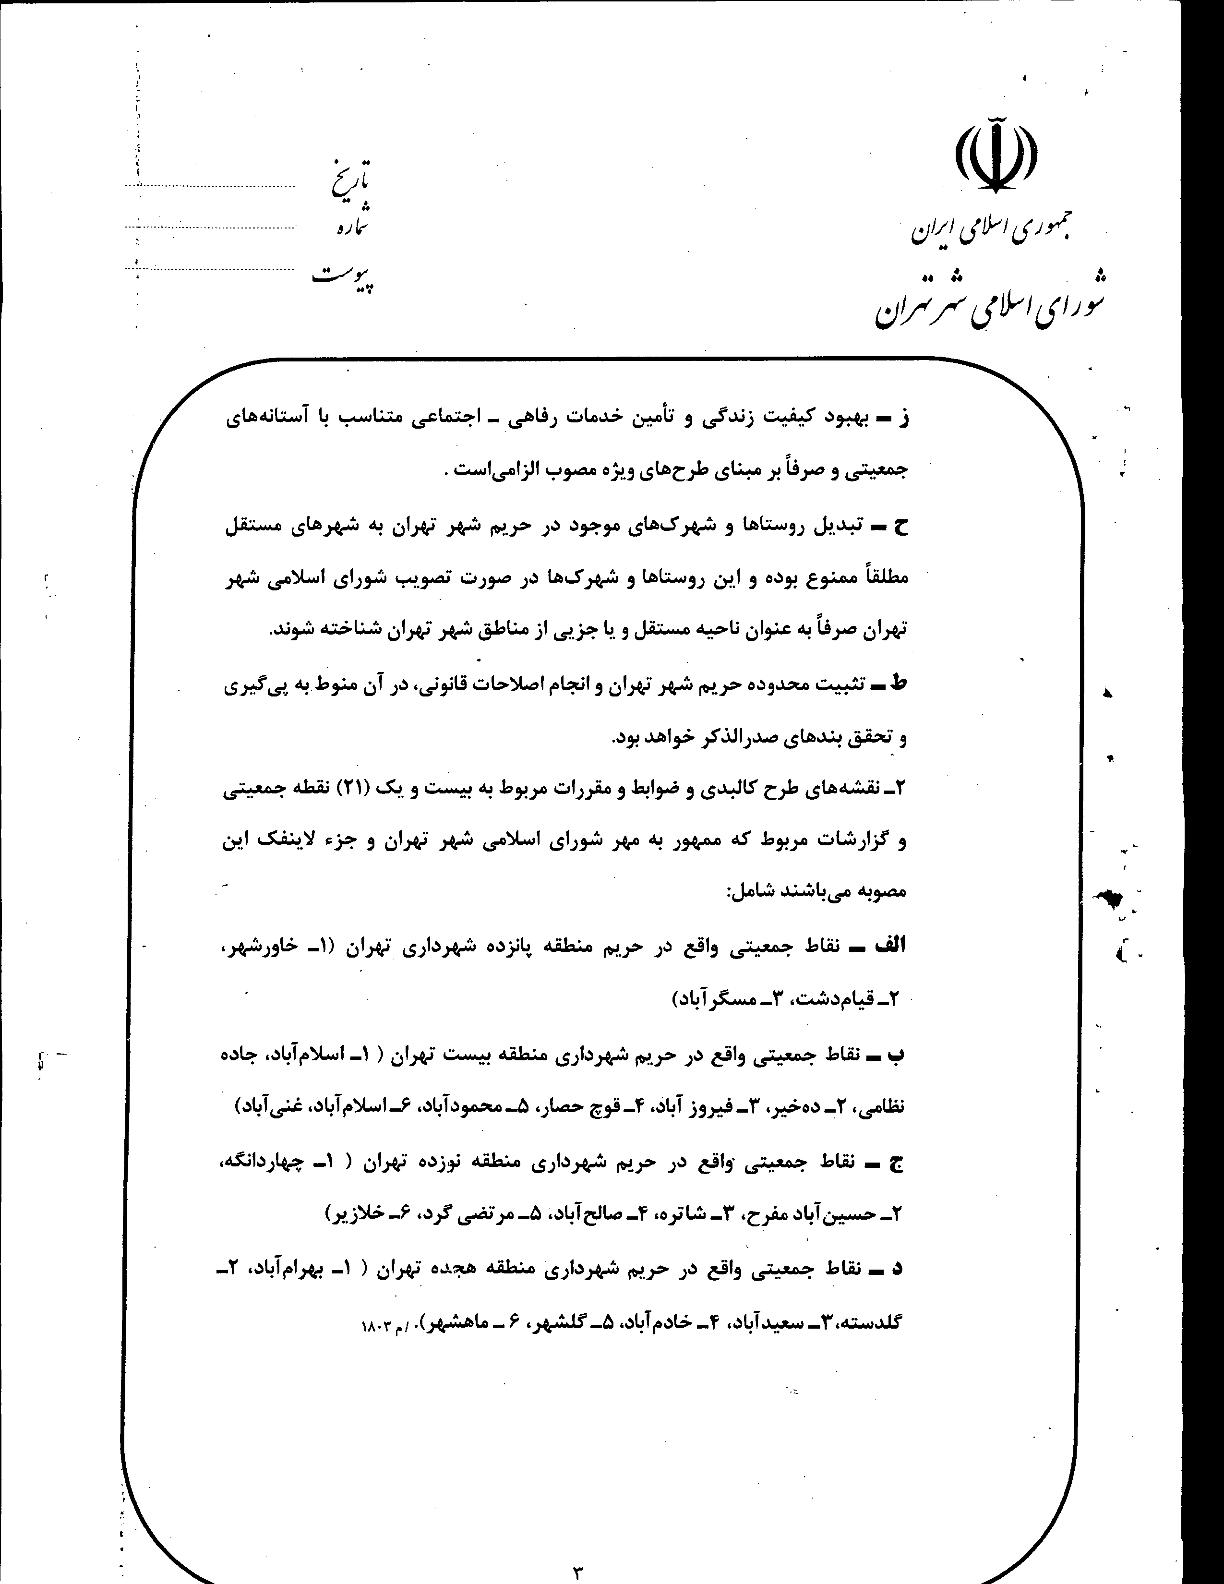 جمهوری اسلامی ایران
شورای اسلامی شهر تهران
تاریخ
شماره
پیوست
ز ـ بهبود کیفیت زندگی و تأمین خدمات رفاهی ـ اجتماعی متناسب با آستانه‌های
جمعیتی و صرفاً بر مبنای طرح‌های ویژه مصوب الزامی‌است .
ح ـ تبدیل روستاها و شهرک‌های موجود در حریم شهر تهران به شهرهای مستقل
مطلقاً ممنوع بوده و این روستاها و شهرک‌ها در صورت تصویب شورای اسلامی شهر
تهران صرفاً به عنوان ناحیه مستقل و یا جزیی از مناطق شهر تهران شناخته شوند.
ط ـ تثبیت محدوده حریم شهر تهران و انجام اصلاحات قانونی، در آن منوط به پی‌گیری
و تحقق بندهای صدرالذکر خواهد بود.
۲ـ نقشه‌های طرح کالبدی و ضوابط و مقررات مربوط به بیست و یک (۲۱) نقطه جمعیتی
و گزارشات مربوط که ممهور به مهر شورای اسلامی شهر تهران و جزء لاینفک این
مصوبه می‌باشند شامل:
الف ـ نقاط جمعیتی واقع در حریم منطقه پانزده شهرداری تهران (۱ـ خاورشهر،
۲ـ قیام‌دشت، ۳ـ مسگرآباد)
ب ـ نقاط جمعیتی واقع در حریم شهرداری منطقه بیست تهران ( ۱ـ اسلام‌آباد، جاده
نظامی، ۲ـ ده‌خیر، ۳ـ فیروز آباد، ۴ـ قوچ حصار، ۵ـ محمودآباد، ۶ـ اسلام‌آباد، غنی‌آباد)
ج ـ نقاط جمعیتی واقع در حریم شهرداری منطقه نوزده تهران ( ۱ـ چهاردانگه،
۲ـ حسین‌آباد مفرح، ۳ـ شاتره، ۴ـ صالح‌آباد، ۵ـ مرتضی گرد، ۶ـ خلازیر)
د ـ نقاط جمعیتی واقع در حریم شهرداری منطقه هجده تهران ( ۱ـ بهرام‌آباد، ۲ـ
گلدسته، ۳ـ سعیدآباد، ۴ـ خادم‌آباد، ۵ـ گلشهر، ۶ ـ ماهشهر). /م ۱۸۰۳
۳